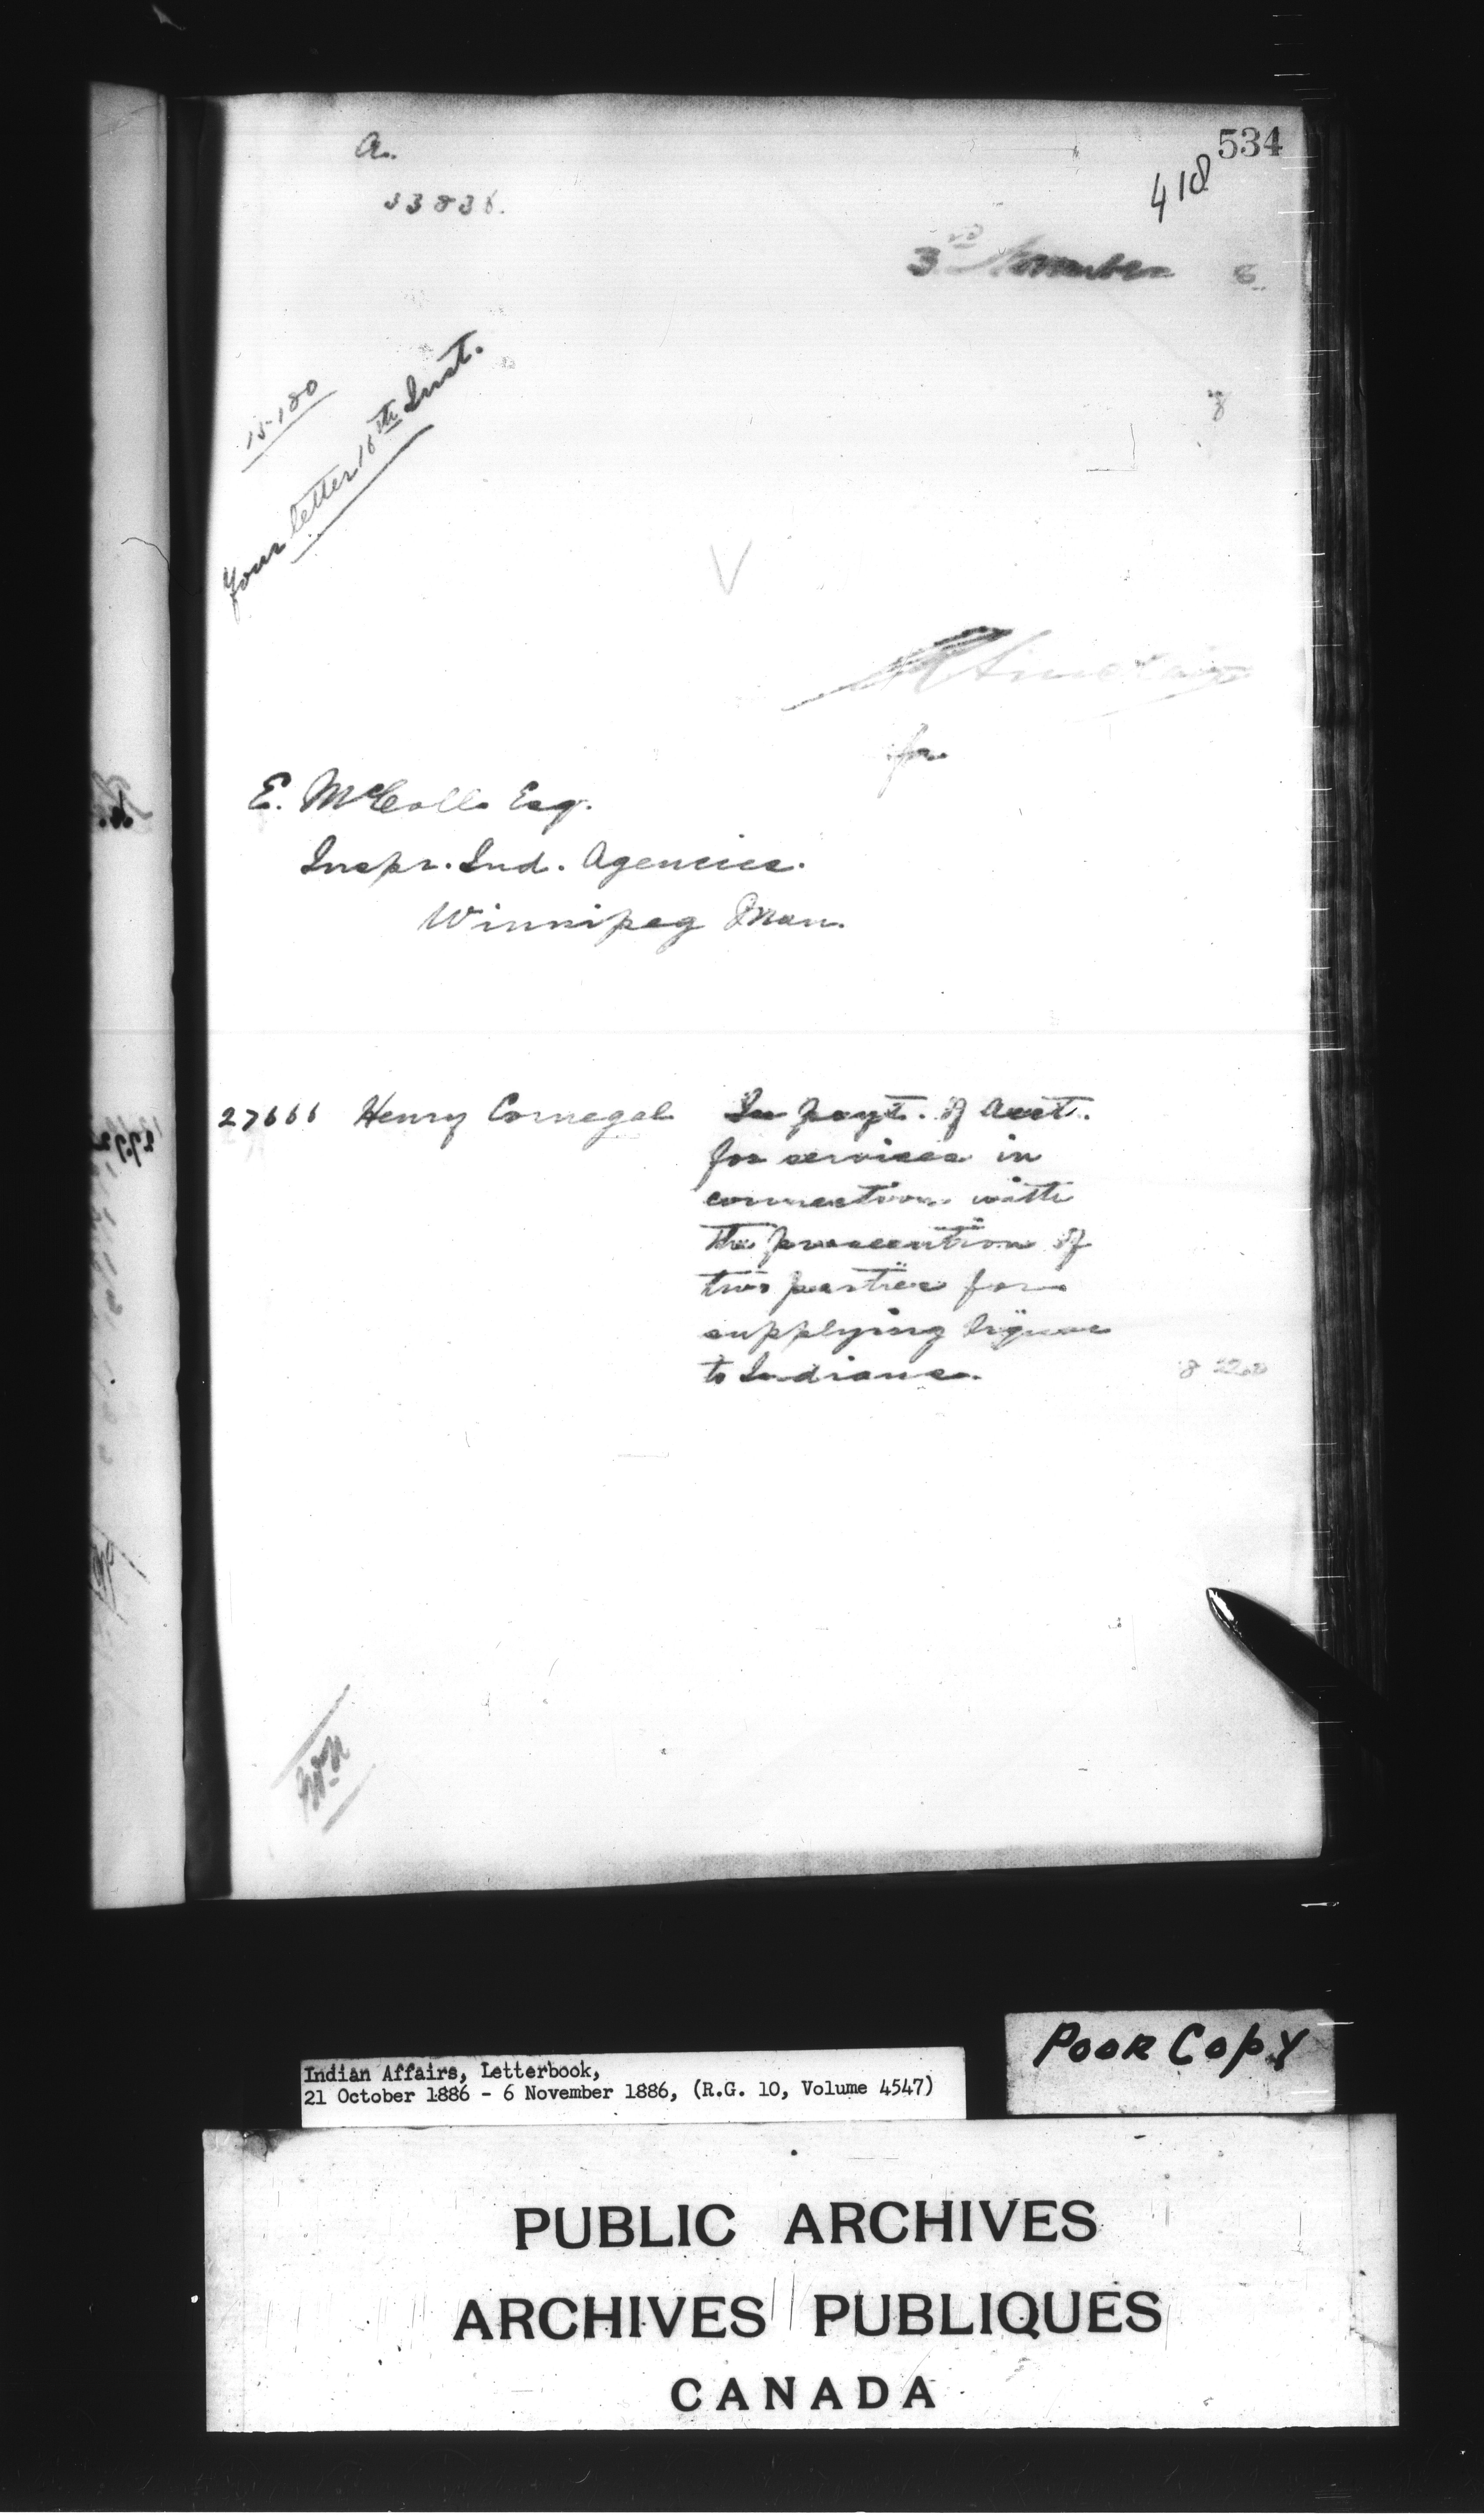 534
a.
418
33836.
3rd November 6
15-180
Your letter 16th Inst.
R Sinclair
for
E. McColl Esq.
Inspr. Ind. Agencies.
Winnipeg Man.
27666 Henry Cornegal In payt. of Acct.
for services in
connection with
the prosecution of
two parties for
supplying liquor
to Indians.
Indian Affairs, Letterbook,
21 October 1886 - 6 November 1886, (R.G. 10, Volume 4547)
POOR COPY
PUBLIC ARCHIVES
ARCHIVES PUBLIQUES
CANADA